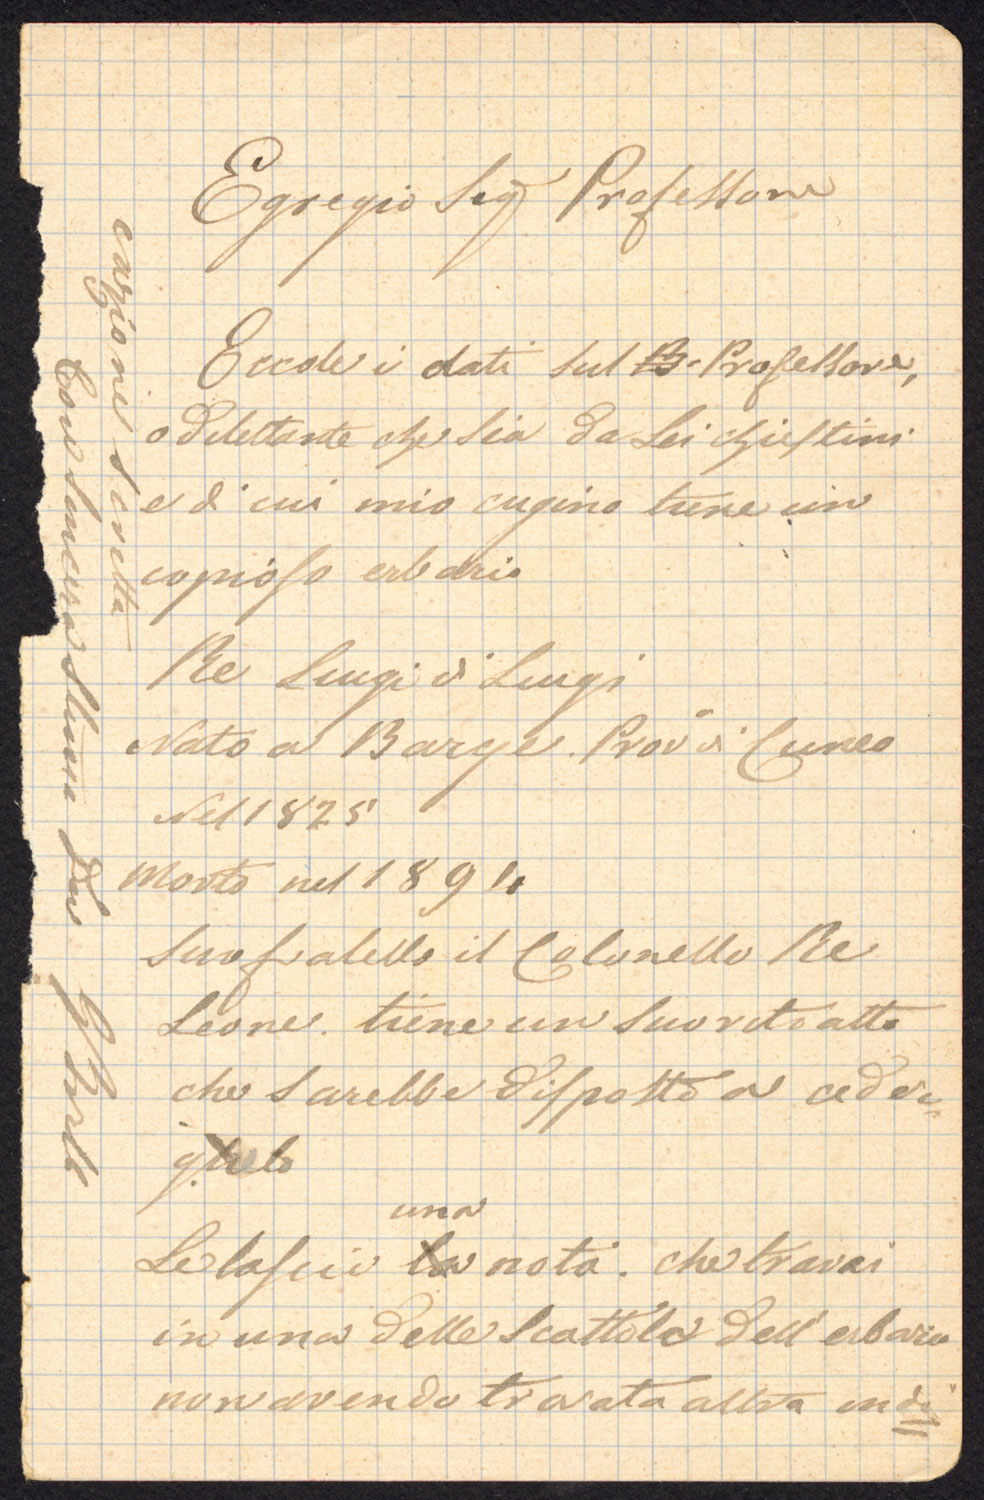 Egregio Sig Professore
Eccole i dati sul B. Professore,
o dilettante che sia da Lei chiestimi
e di cui mio cugino tiene un
copioso erbario
Re Luigi di Luigi
Nato a Barge. Prov di Cuneo
Nel 1825
Morto nel 1894
Suo fratello il Colonello Re
Leone. tiene un suo ritratto
che sarebbe disposto a ceder-
glielo
una
Le lascio la nota. che trovai
in una delle scattole dell'erbario
non avendo trovata altra indi
cazione scritta
Con sincera stima Dev